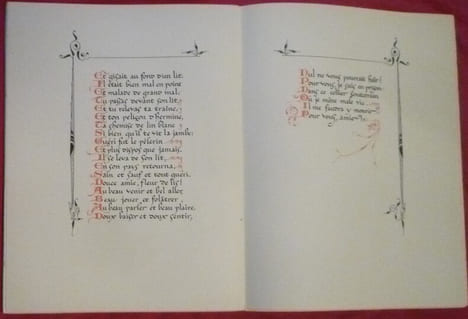 Et gisait au fond d'un lit.
Il était bien mal en point
Et malade de grand mal.
Tu passas devant son lit,
Et tu relevas ta traîne,
Et ton peliçon d'hermine,
Ta chemise de lin blanc
Si bien qu'il te vit la jambe:
Guéri fut le pèlerin
Et plus dispos que jamais.
Il se leva de son lit,
En son pays retourna,
Sain et sauf et tout guéri.
Douce amie, fleur de lis!
Au beau venir et bel aller,
Beau jouer et folâtrer,
Au beau parler et beau plaire,
Doux baiser et doux sentir,
Nul ne vous pourrait haïr!
Pour vous je suis en prison
Dans ce cellier souterrain
Où je mène male vie
Il me faudra y mourir
Pour vous, amie.